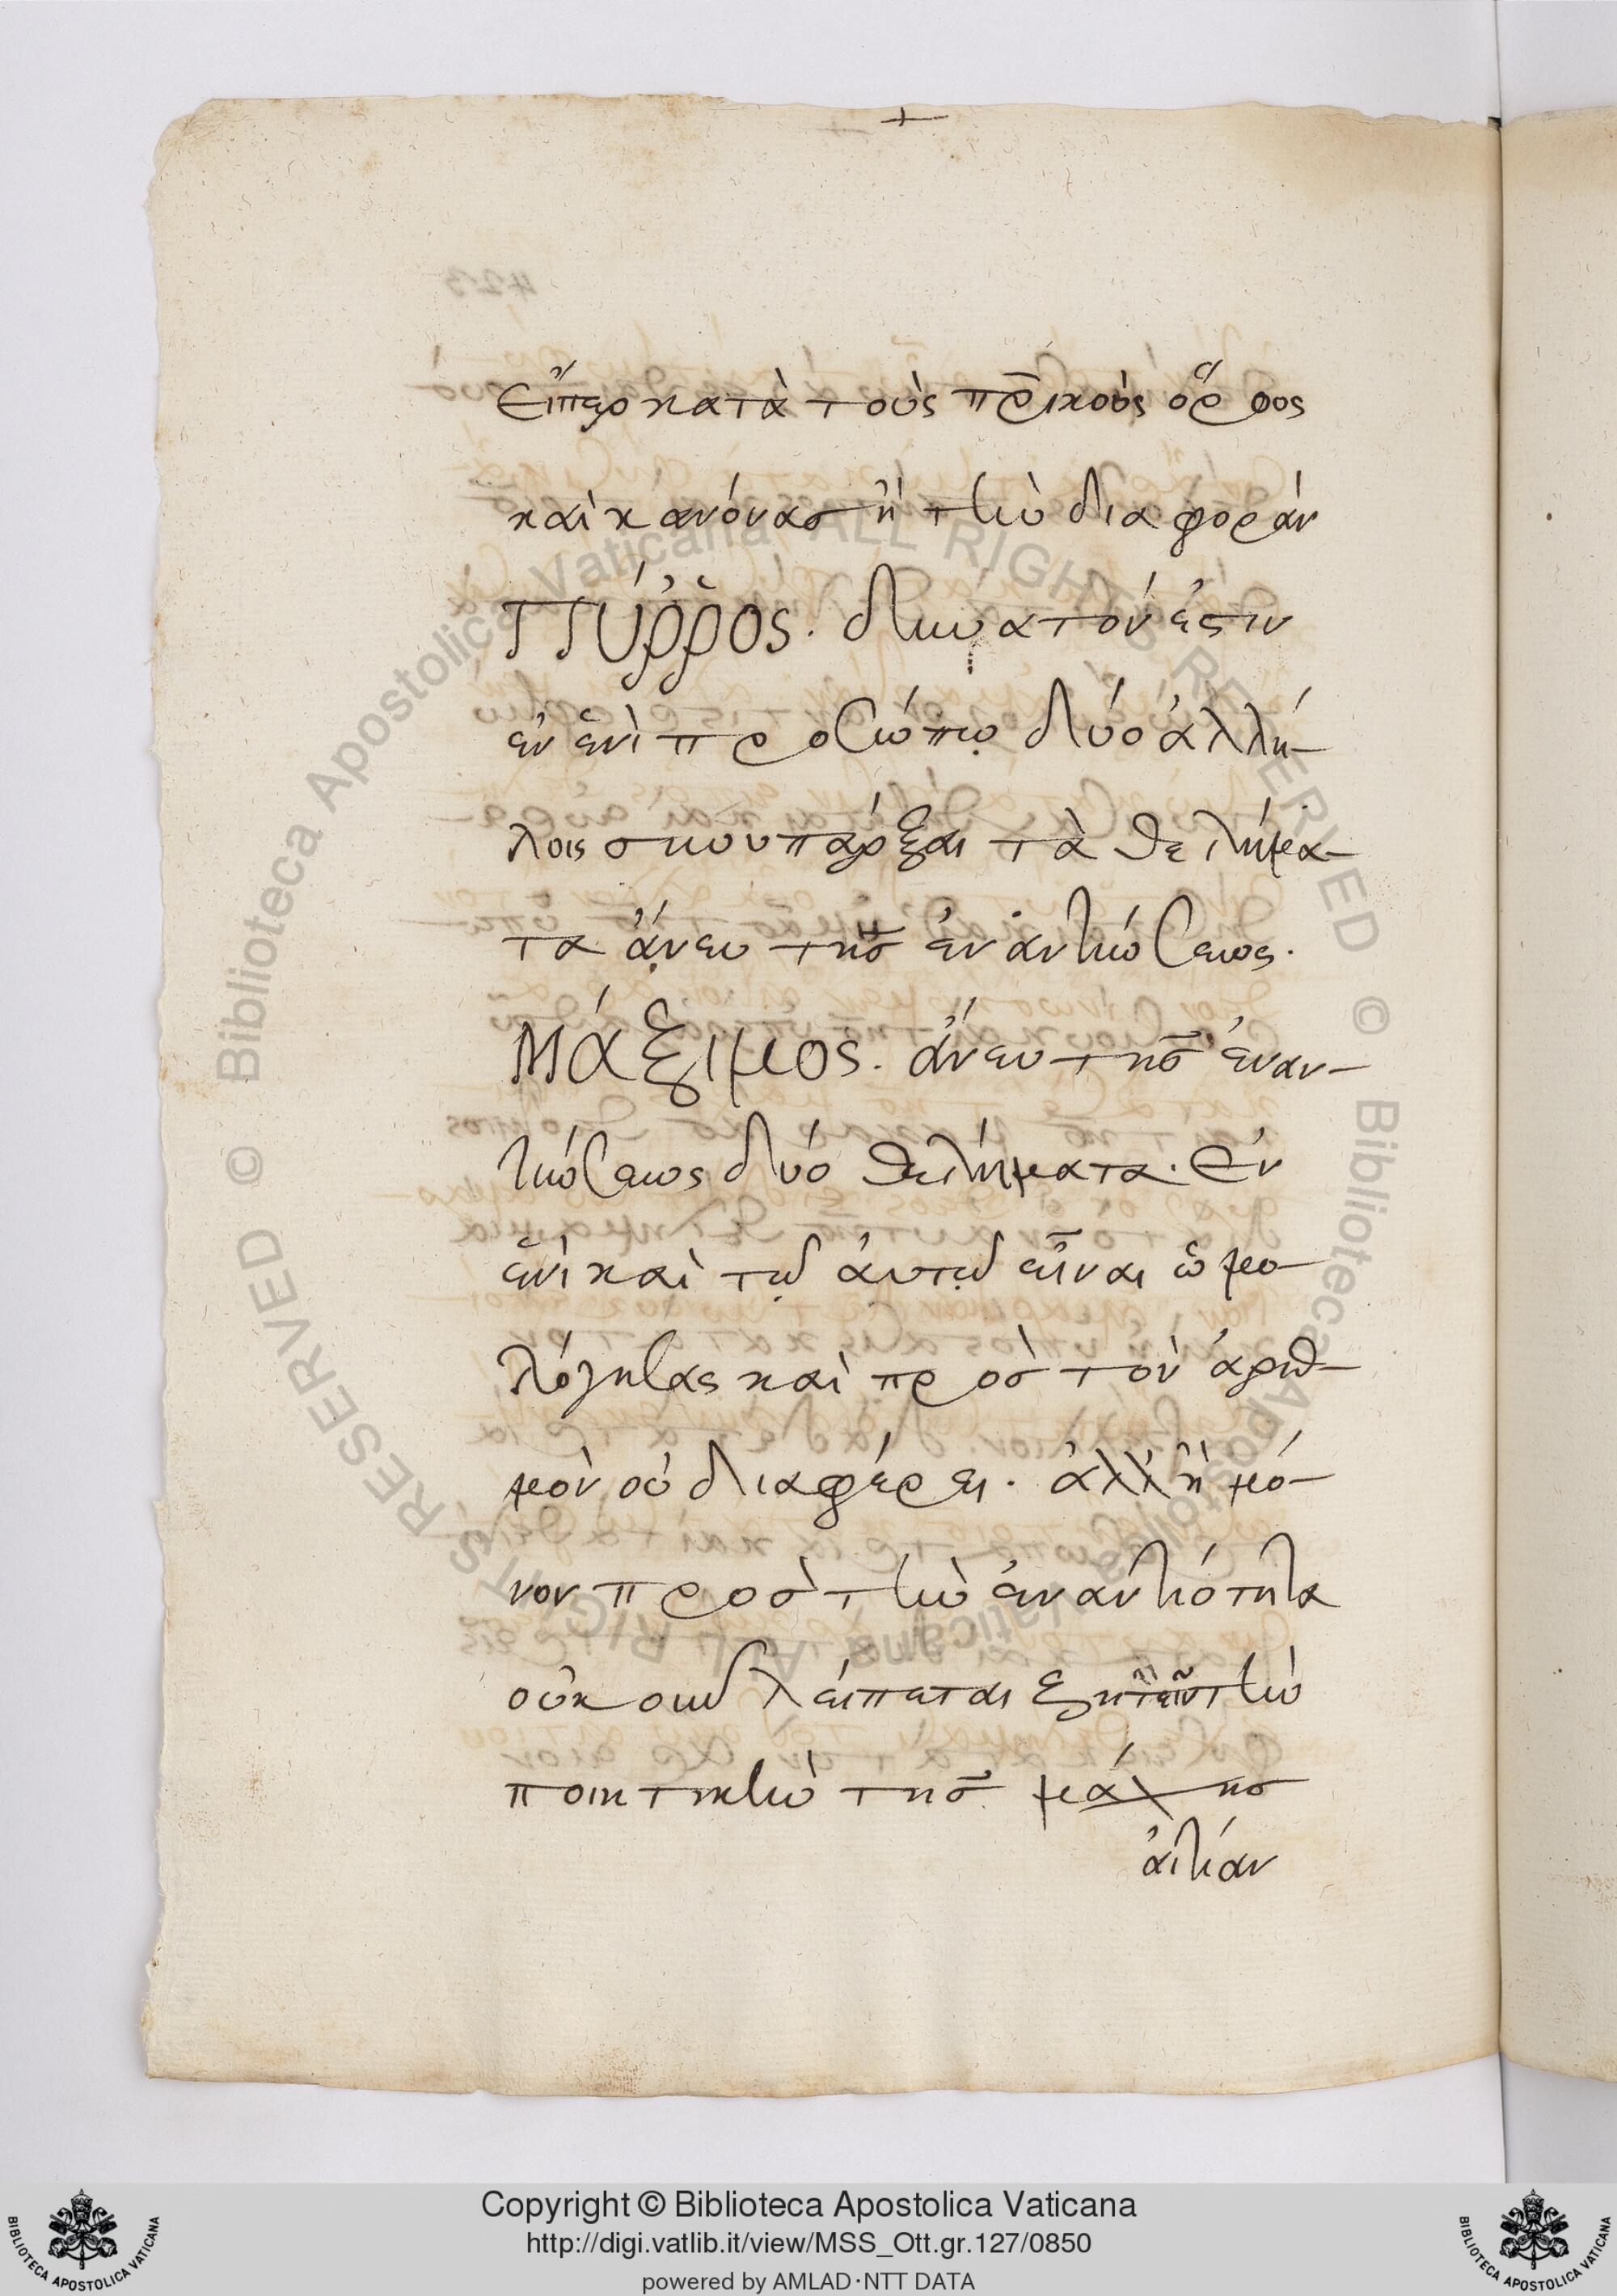 +
εἴπερ κατὰ τοὺς πρ̅ικοὺς ὅρους
καὶ κανόνας ἢ τὴν διαφορὰν
Πύῤῥος. δυνατόν ἐστιν
ἐν ἑνὶ προσώπῳ δύο ἀλλή-
λοις συνυπάρξαι τὰ θελήμα-
τα ἄνευ τῆς ἐναντιώσεως.
Μάξιμος. ἄνευ τῆς ἐναν-
τιώσεως δύο θελήματα. ἐν
ἑνὶ καὶ τῷ ἀυτῷ εἶναι ὡμο-
λόγησας καὶ πρὸς τὸν ἀριθ-
μὸν οὐ διαφέρει. ἀλλ' ἢ μό-
νον πρὸς τὴν ἐναντιότητα
οὐκοῦν λείπεται ζητεῖν τὴν
ποιητικὴν τῆς μάχης
ἀιτίαν
Copyright © Biblioteca Apostolica Vaticana
http://digi.vatlib.it/view/MSS_Ott.gr.127/0850
powered by AMLAD·NTT DATA
BIBLIOTECA APOSTOLICA VATICANA
BIBLIOTECA APOSTOLICA VATICANA
© Biblioteca Apostolica Vaticana ALL RIGHTS RESERVED
© Biblioteca Apostolica Vaticana ALL RIGHTS RESERVED